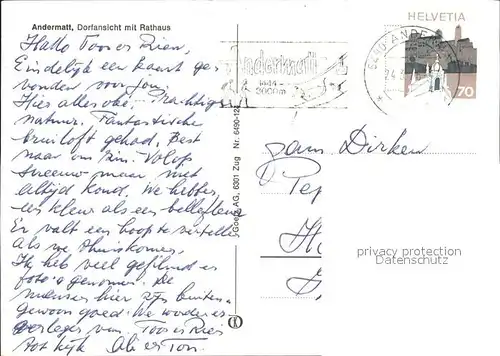 Andermatt, Dorfansicht mit Rathaus
Hallo Toos en Rien,
Eindelijk een kaart ge
vonden voor jou.
Hier alles oke. Prachtige
natuur. Fantastische
bruiloft gehad. Best
naar ons zin. Volop
sneeuw maar niet
altijd koud. We hebben
een kleur als een
Er valt een hoop te vertellen
als we thuiskomen.
Ik heb veel gefilmd en
foto's genomen. De
mensen hier zijn buiten-
gewoon goed. We worden er
verlegen van. Toos en Rien
tot kijk Ali en Ton.
Goetz AG, 6301 Zug Nr. 6490-12
HELVETIA
70
6490 ANDERMATT
Andermatt
1444 -
3000m
Dirken
privacy protection
Datenschutz